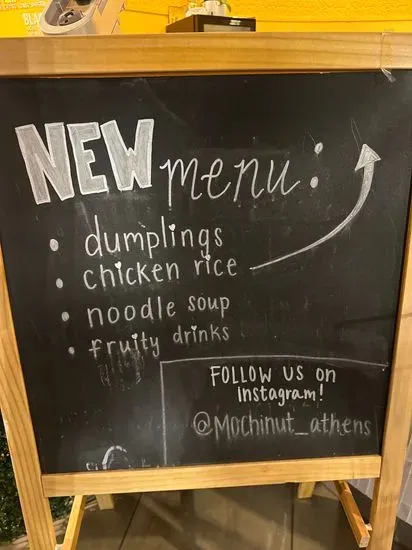 NEW menu:
• dumplings
• chicken rice
• noodle soup
• fruity drinks
FOLLOW US on
Instagram!
@Mochinut_athens